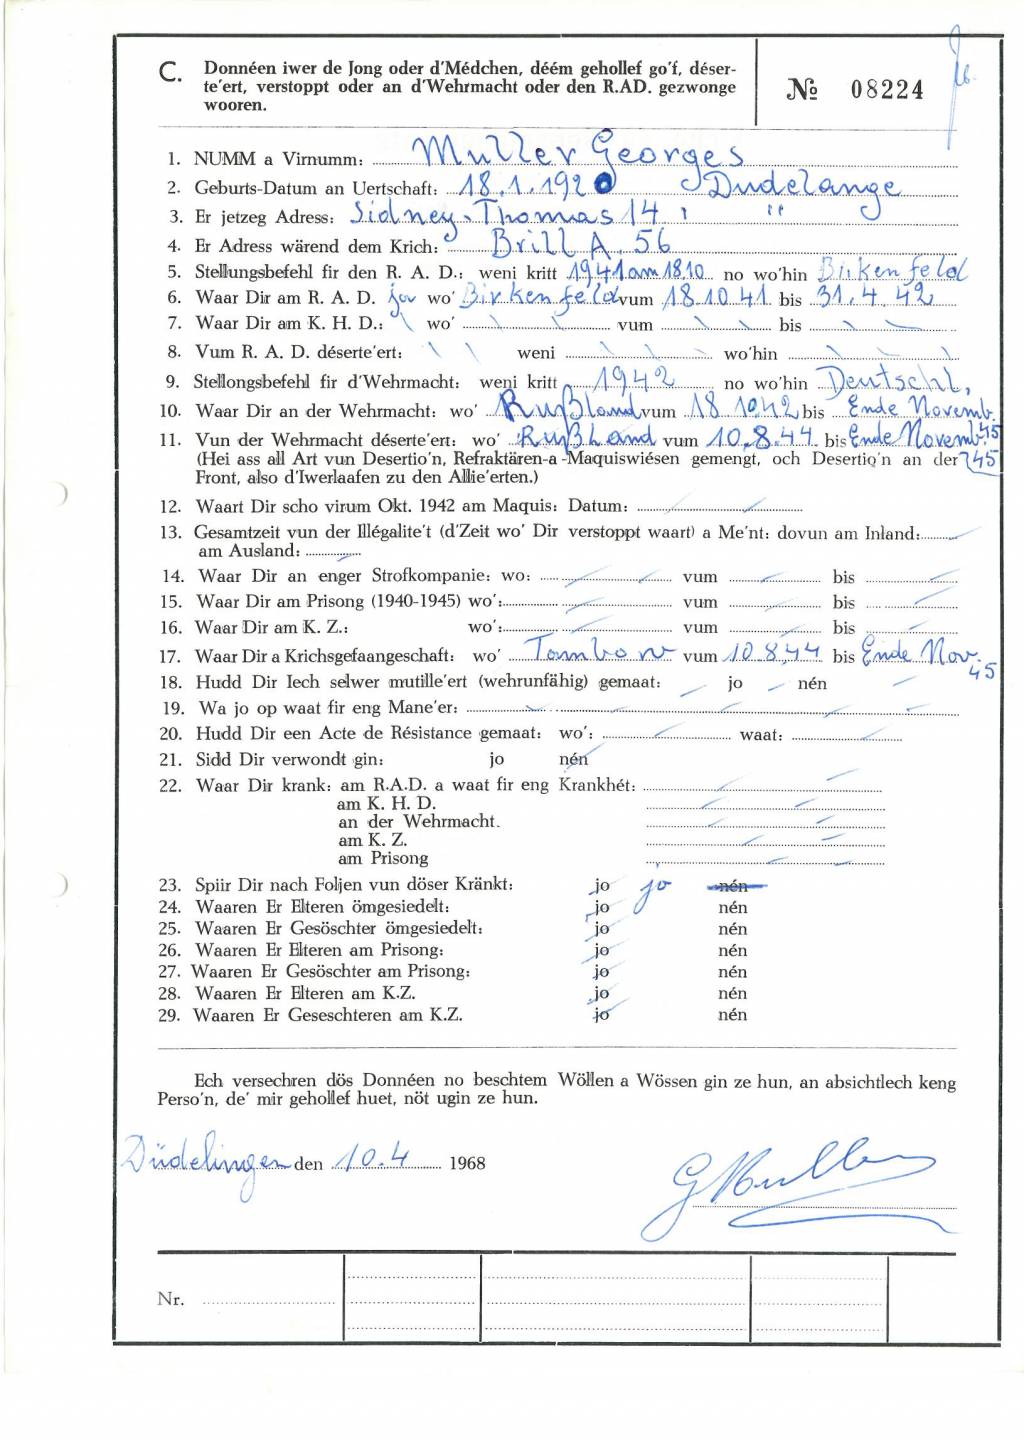 C. Donnéen iwer de Jong oder d'Médchen, déém gehollef go'f, déser-
te'ert, verstoppt oder an d'Wehrmacht oder den R.AD. gezwonge
wooren.
№ 08224
1. NUMM a Virnumm: Muller Georges
2. Geburts-Datum an Uertschaft: 18.1.1920 Dudelange
3. Er jetzeg Adress: Sidney-Thomas 14, "
4. Er Adress wärend dem Krich: Brill A. 56
5. Stellungsbefehl fir den R. A. D.: weni kritt 1941 am 18.10 no wo'hin Birkenfeld
6. Waar Dir am R. A. D. jo wo' Birkenfeld vum 18.10.41 bis 31.4.42
7. Waar Dir am K. H. D.: \ wo' \ \ vum \ \ bis \ \
8. Vum R. A. D. déserte'ert: \ \ weni \ \ \ wo'hin \ \ \
9. Stellongsbefehl fir d'Wehrmacht: weni kritt 1942 no wo'hin Deutschl.
10. Waar Dir an der Wehrmacht: wo' Rußland vum 18.10.42 bis Ende Novemb. 45
11. Vun der Wehrmacht déserte'ert: wo' Rußland vum 10.8.44 bis Ende Novemb. 45
(Hei ass all Art vun Desertio'n, Refraktären-a -Maquiswiésen gemengt, och Desertio'n an der
Front, also d'Iwerlaafen zu den Allie'erten.)
12. Waart Dir scho virum Okt. 1942 am Maquis: Datum:
13. Gesamtzeit vun der Illégalite't (d'Zeit wo' Dir verstoppt waart) a Me'nt: dovun am Inland:
am Ausland:
14. Waar Dir an enger Strofkompanie: wo: vum bis
15. Waar Dir am Prisong (1940-1945) wo': vum bis
16. Waar Dir am K. Z.: wo': vum bis
17. Waar Dir a Krichsgefaangeschaft: wo' Tambow vum 10.8.44 bis Ende Nov. 45
18. Hudd Dir Iech selwer mutille'ert (wehrunfähig) gemaat: jo nén
19. Wa jo op waat fir eng Mane'er:
20. Hudd Dir een Acte de Résistance gemaat: wo': waat:
21. Sidd Dir verwondt gin: jo nén
22. Waar Dir krank: am R.A.D. a waat fir eng Krankhét:
am K. H. D.
an der Wehrmacht.
am K. Z.
am Prisong
23. Spiir Dir nach Foljen vun döser Kränkt: jo jo nén
24. Waaren Er Elteren ömgesiedelt: jo nén
25. Waaren Er Gesöschter ömgesiedelt: jo nén
26. Waaren Er Elteren am Prisong: jo nén
27. Waaren Er Gesöschter am Prisong: jo nén
28. Waaren Er Elteren am K.Z. jo nén
29. Waaren Er Geseschteren am K.Z. jo nén
Ech versechren dös Donnéen no beschtem Wöllen a Wössen gin ze hun, an absichtlech keng
Perso'n, de' mir gehollef huet, nöt ugin ze hun.
Düdelingen den 10.4 1968
G Muller
Nr.